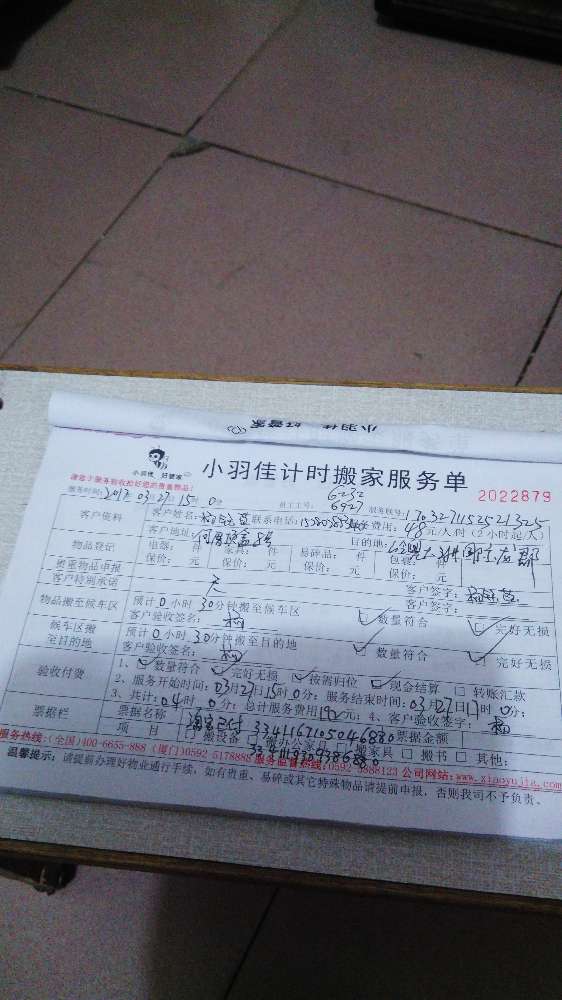 小羽佳 好管家
小羽佳 好管家
小羽佳计时搬家服务单
2022879
请您于服务前收拾好您的贵重物品!
服务时间:2017 03月27日15时0分 员工工号: 6232 6927 服务账号:170327115252 1325
客户资料 客户姓名: 联系电话: 费用:48元/人时(2小时起/人)
客户地址: 目的地:
物品登记 电器: 件 家具: 件 易碎品: 件 包裹: 件
贵重物品申报 保价: 元 保价: 元 保价: 元 保价: 元
客户特别承诺 无 客户签字:
物品搬至候车区 预计0小时30分钟搬至候车区 ☑ 数量符合 ☑ 完好无损
客户验收签名: 客户签字:
候车区搬至目的地 预计0小时30分钟搬至目的地 ☑ 数量符合 ☑ 完好无损
客户验收签名:
验收付费 1、☑ 数量符合 ☑ 完好无损 ☑ 按需归位 ☑ 现金结算 □ 转账汇款
2、服务开始时间:03月27日15时0分; 服务结束时间:03月27日17时0分;
3、共计:04时0分;总计服务费用192元; 4、客户验收签字:
票据栏 票据名称 淘宝已付 3341167105046880 票据金额
项 目 □ 搬设备 搬办公 搬家具 □ 搬书 □ 其他:
服务热线:(全国)400-6655-888 (厦门)0592 5178888 服务监督热线:0592 5888123 公司网站:www.xiaoyujia.com
温馨提示:请提前办理好物业通行手续,如有贵重、易碎或其它特殊物品请提前申报,否则我司不予负责。